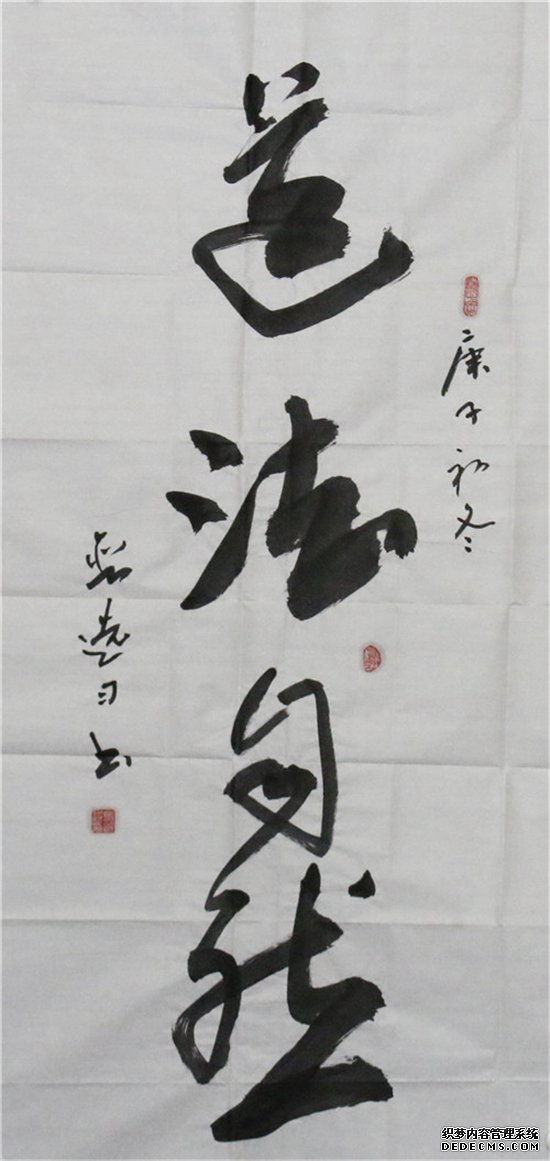 道法自然
庚子初冬
书
织梦内容管理系统
DEDECMS.COM